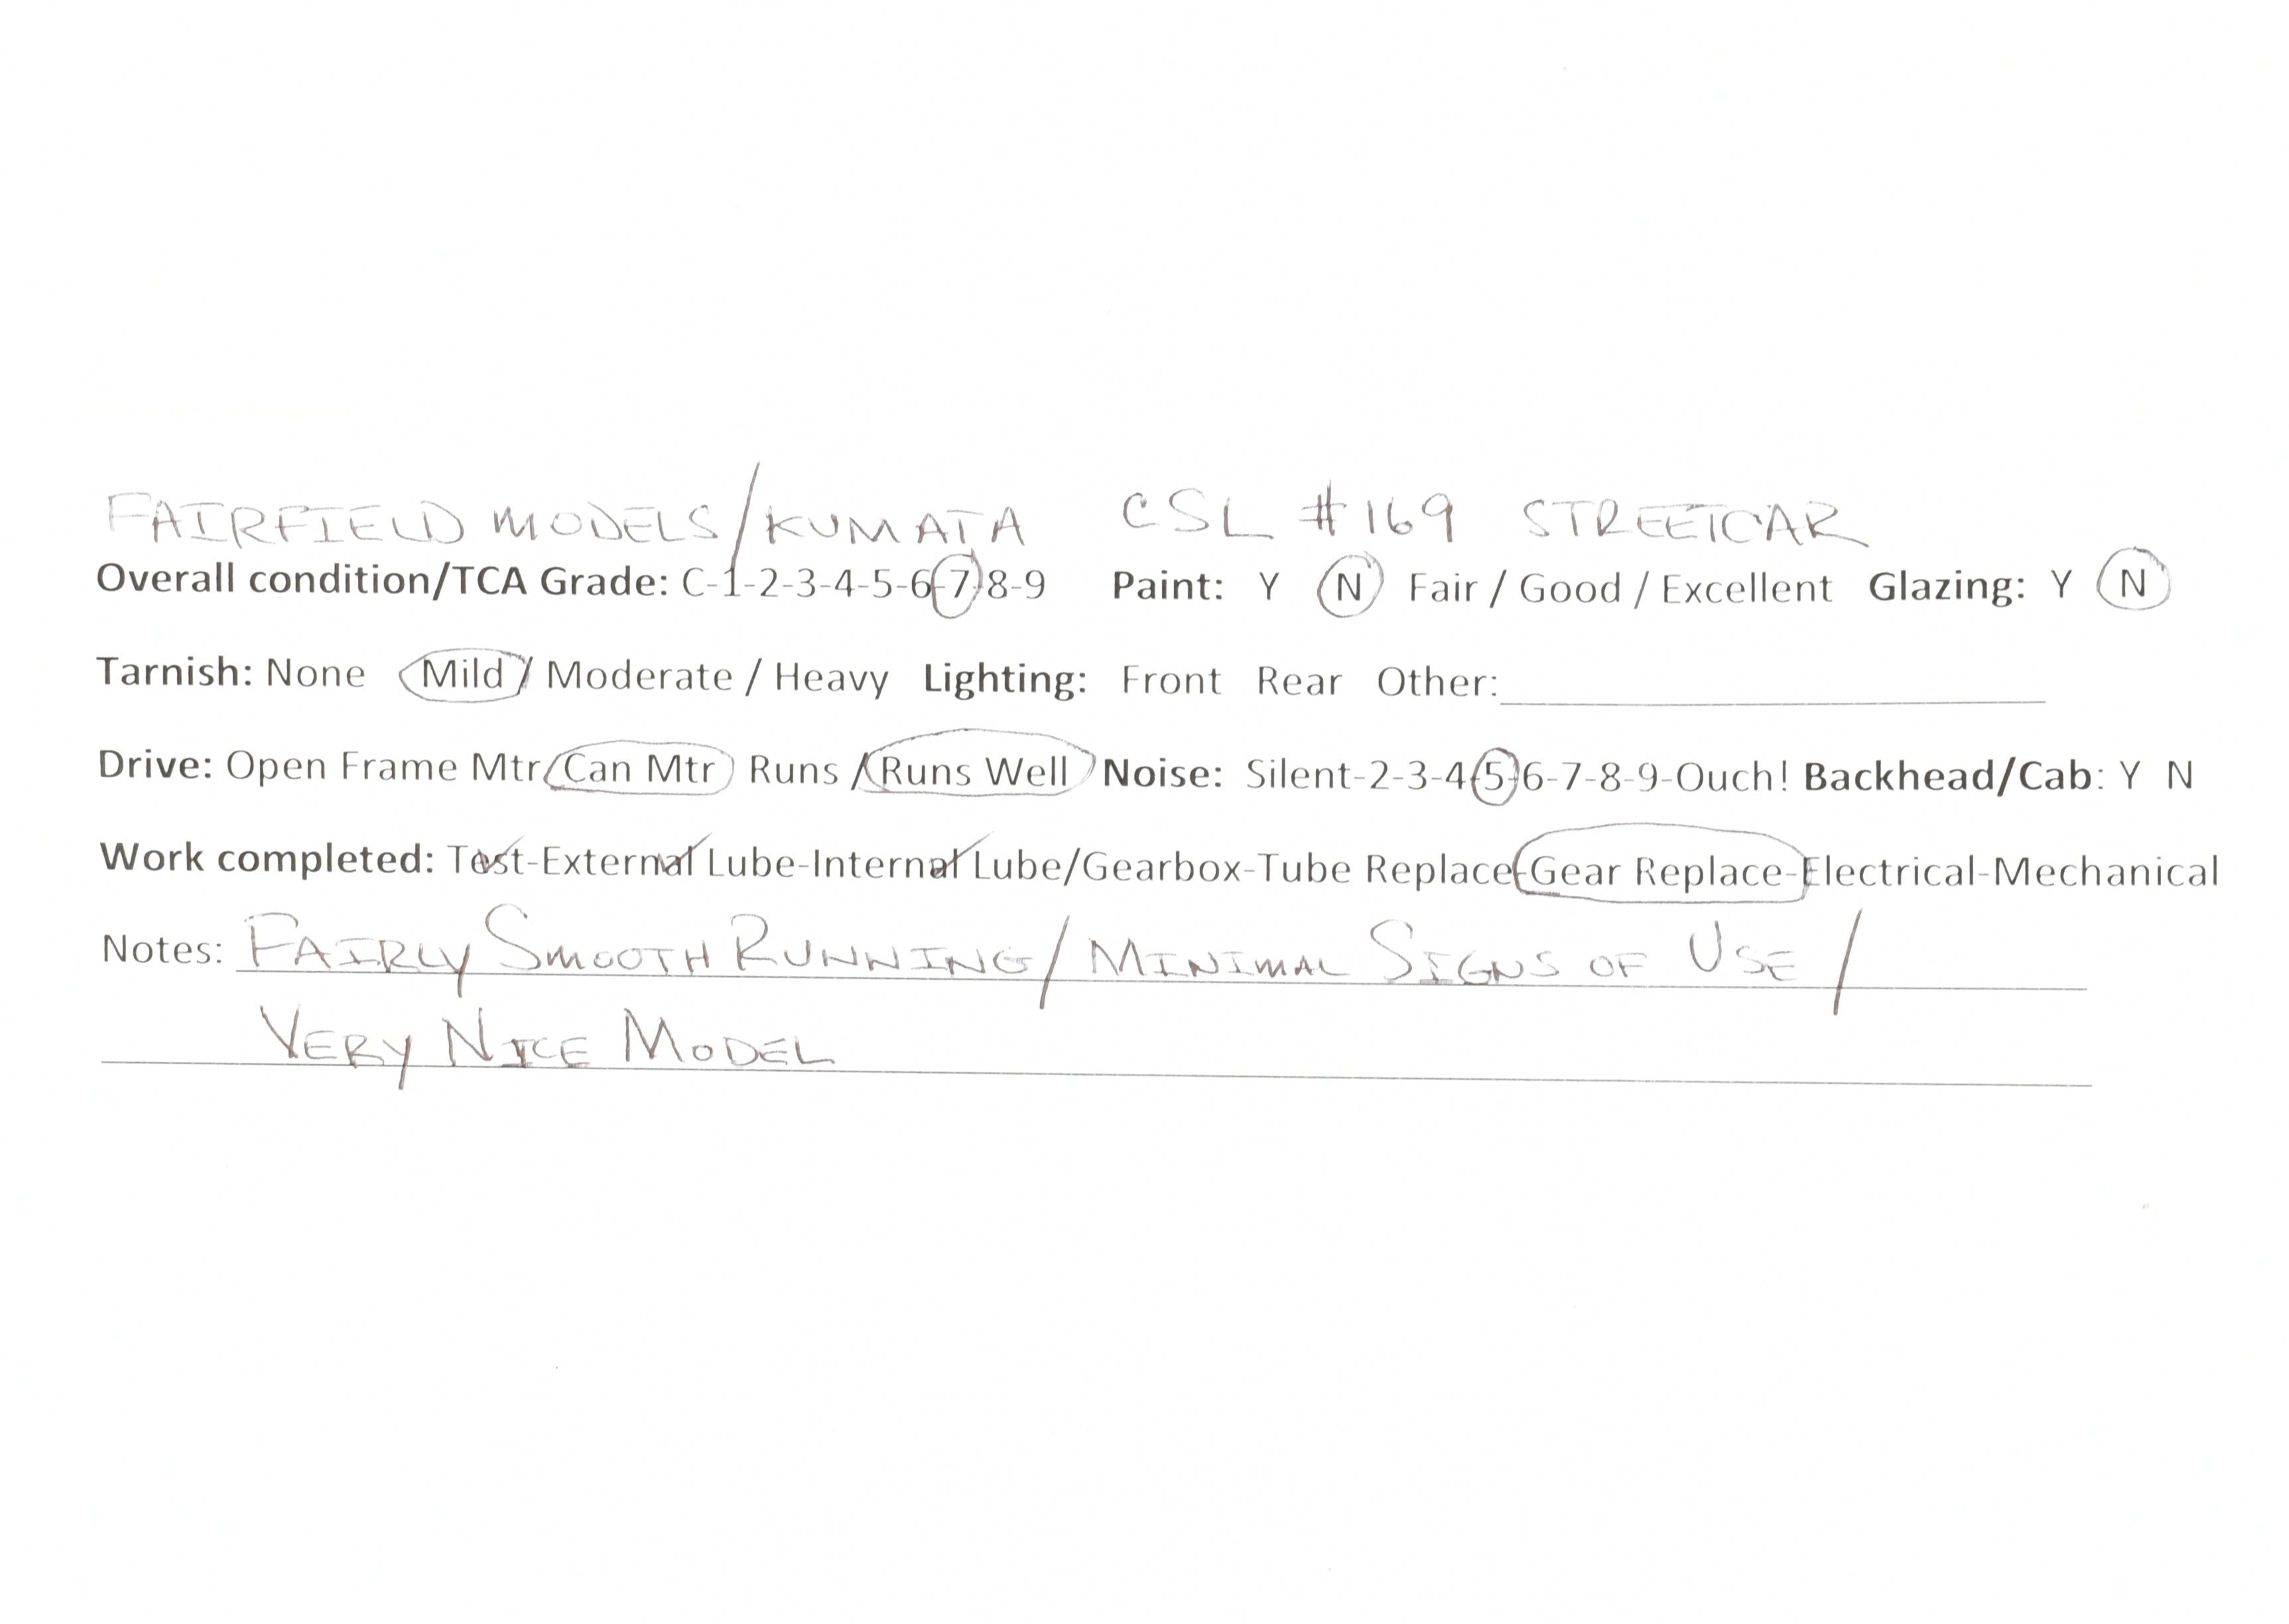 FAIRFIELD MODELS/KUMATA CSL #169 STREETCAR
Overall condition/TCA Grade: C-1-2-3-4-5-6-7-8-9 Paint: Y N Fair / Good / Excellent Glazing: Y N
Tarnish: None Mild / Moderate / Heavy Lighting: Front Rear Other:
Drive: Open Frame Mtr/Can Mtr Runs / Runs Well Noise: Silent-2-3-4-5-6-7-8-9-Ouch! Backhead/Cab: Y N
Work completed: Test-External Lube-Internal Lube/Gearbox-Tube Replace-Gear Replace-Electrical-Mechanical
Notes: FAIRLY SMOOTH RUNNING/ MINIMAL SIGNS OF USE /
VERY NICE MODEL